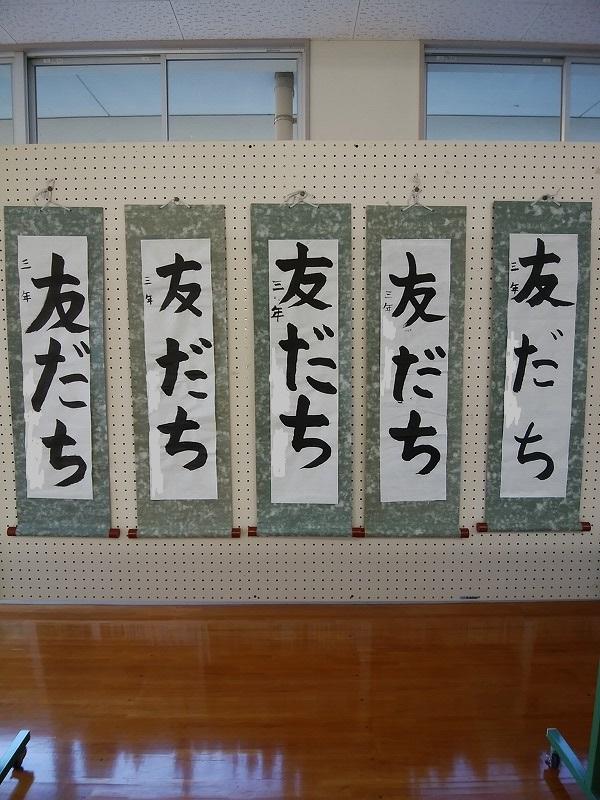 友だち
三年
友だち
三年
友だち
三年
友だち
三年
友だち
三年